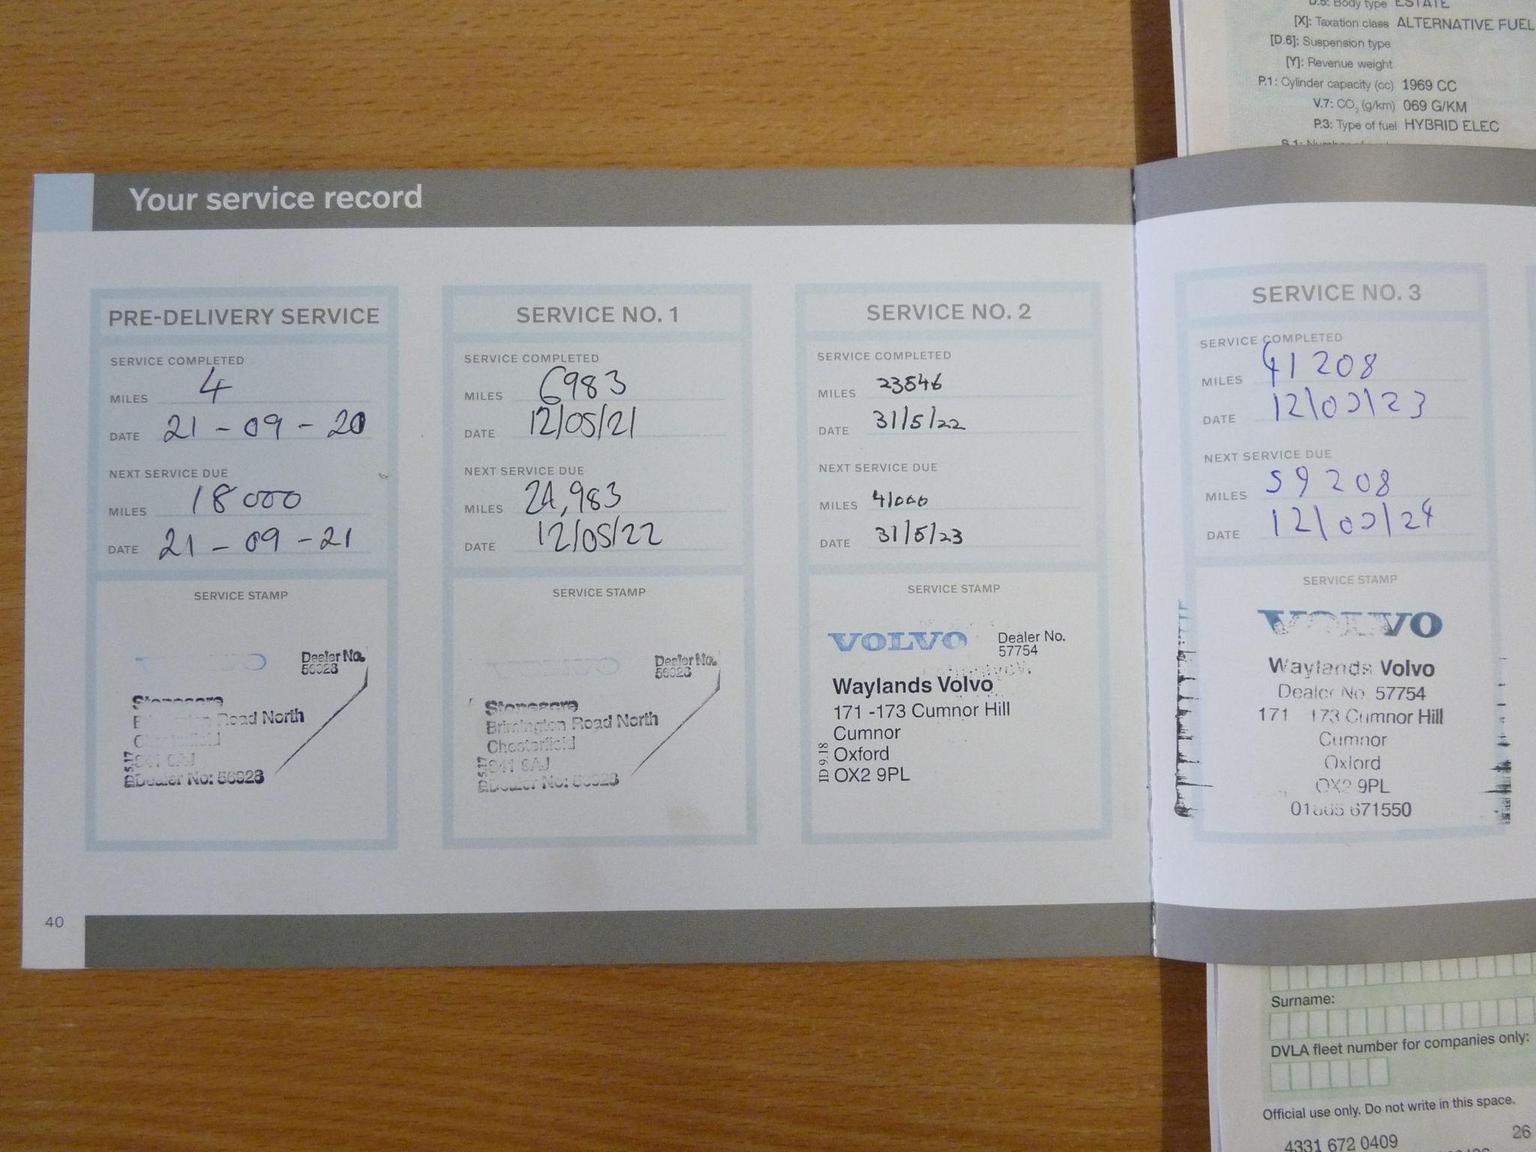 D.5: Body type ESTATE
[X]: Taxation class ALTERNATIVE FUEL
[D.6]: Suspension type
[Y]: Revenue weight
P.1: Cylinder capacity (cc) 1969 CC
V.7: CO2 (g/km) 069 G/KM
P.3: Type of fuel HYBRID ELEC
Your service record
PRE-DELIVERY SERVICE
SERVICE COMPLETED
MILES 4
DATE 21-09-20
NEXT SERVICE DUE
MILES 18000
DATE 21-09-21
SERVICE STAMP
Dealer No.
56928
Road North
Dealer No: 56928
SERVICE NO. 1
SERVICE COMPLETED
MILES 6983
DATE 12/05/21
NEXT SERVICE DUE
MILES 24,983
DATE 12/05/22
SERVICE STAMP
Dealer No.
56928
Brimington Road North
Chesterfield
Dealer No: 56928
SERVICE NO. 2
SERVICE COMPLETED
MILES 23546
DATE 31/5/22
NEXT SERVICE DUE
MILES 41000
DATE 31/5/23
SERVICE STAMP
VOLVO
Dealer No.
57754
Waylands Volvo
171 -173 Cumnor Hill
Cumnor
Oxford
OX2 9PL
ID 9.18
SERVICE NO. 3
SERVICE COMPLETED
MILES 41208
DATE 12/0 /23
NEXT SERVICE DUE
MILES 59208
DATE 12/0 /24
SERVICE STAMP
VOLVO
Waylands Volvo
Dealer No. 57754
171 173 Cumnor Hill
Cumnor
Oxford
OX2 9PL
01865 671550
40
Surname:
DVLA fleet number for companies only:
Official use only. Do not write in this space.
4331 672 0409
26